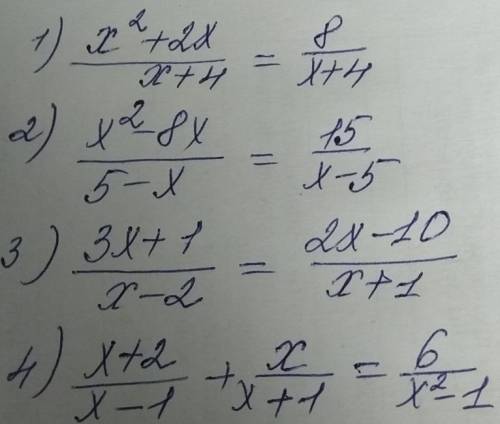 1) \frac{x^2+2x}{x+4} = \frac{8}{x+4}
2) \frac{x^2-8x}{5-x} = \frac{15}{x-5}
3) \frac{3x+1}{x-2} = \frac{2x-10}{x+1}
4) \frac{x+2}{x-1} + \frac{x}{x+1} = \frac{6}{x^2-1}